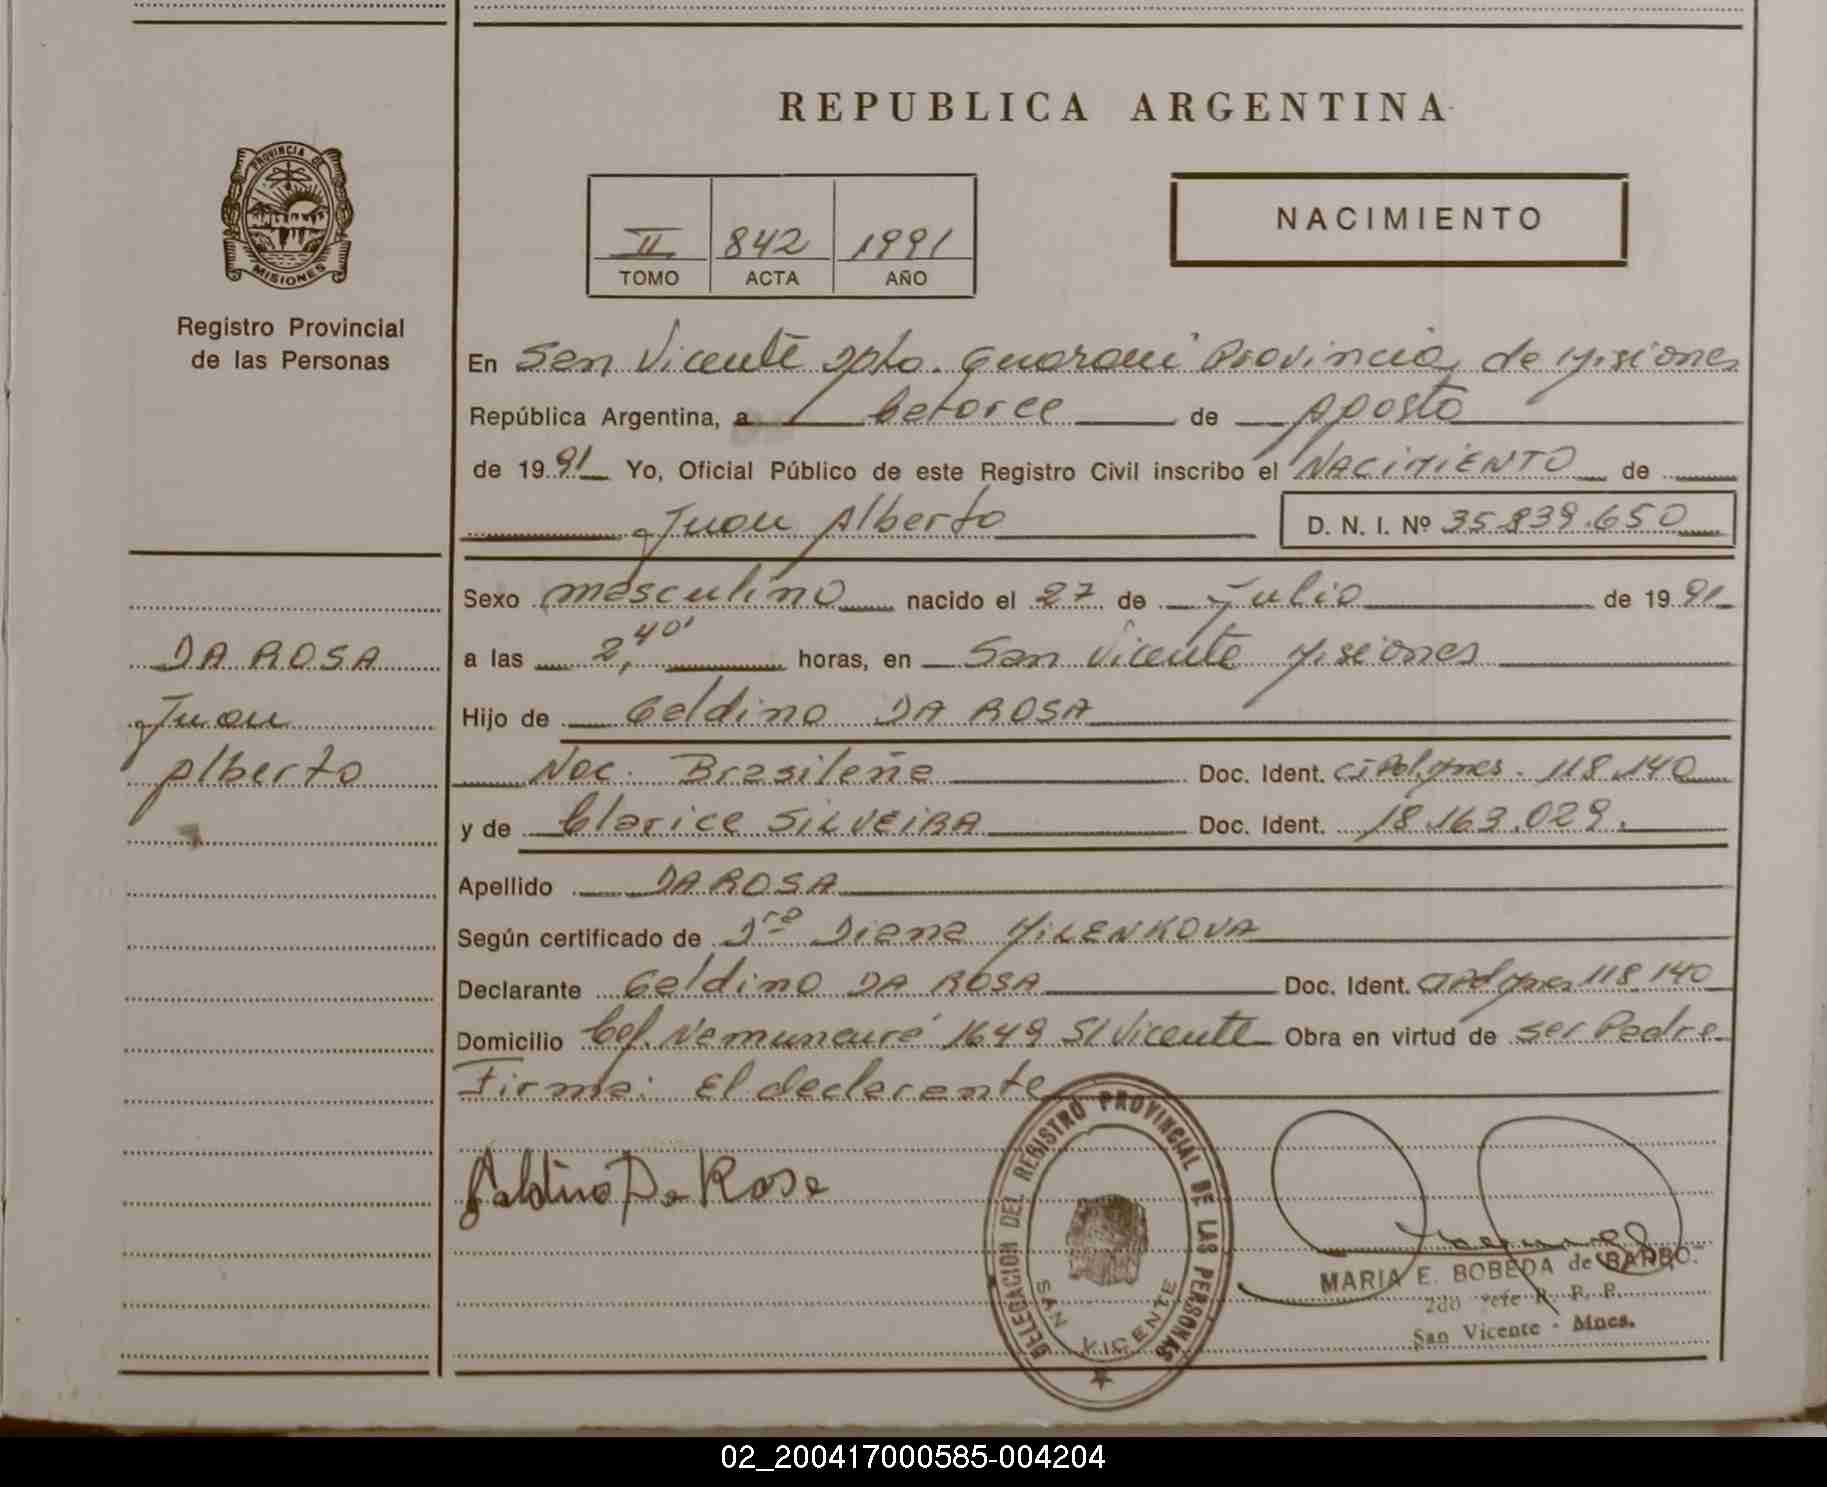 REPUBLICA ARGENTINA
PROVINCIA DE MISIONES
Registro Provincial
de las Personas
II 842 1991
TOMO ACTA AÑO
NACIMIENTO
En San Vicente Dpto. Guarani Provincia de Misiones
República Argentina, a catorce de Agosto
de 1991 Yo, Oficial Público de este Registro Civil inscribo el NACIMIENTO de
Juan Alberto D. N. I. Nº 35.839.650
Sexo masculino nacido el 27 de Julio de 1991
a las 2,40' horas, en San Vicente Misiones
Hijo de Celdino DA ROSA
Nac. Brasileña Doc. Ident. 118.140
y de Clarice SILVEIRA Doc. Ident. 18.163.029.
Apellido DA ROSA
Según certificado de Dra Diana MILENKOVA
Declarante Celdino DA ROSA Doc. Ident. 118.140
Domicilio Cef. Namuncurá 1649 S/Vicente Obra en virtud de ser Padre
Firma: El declarante
DA ROSA
Juan
Alberto
Celdino Da Rosa
DELEGACION DEL REGISTRO PROVINCIAL DE LAS PERSONAS
SAN VICENTE
MARIA E. BOBEDA de BARBO
2do Jefe R. P. P.
San Vicente - Mnes.
02_200417000585-004204